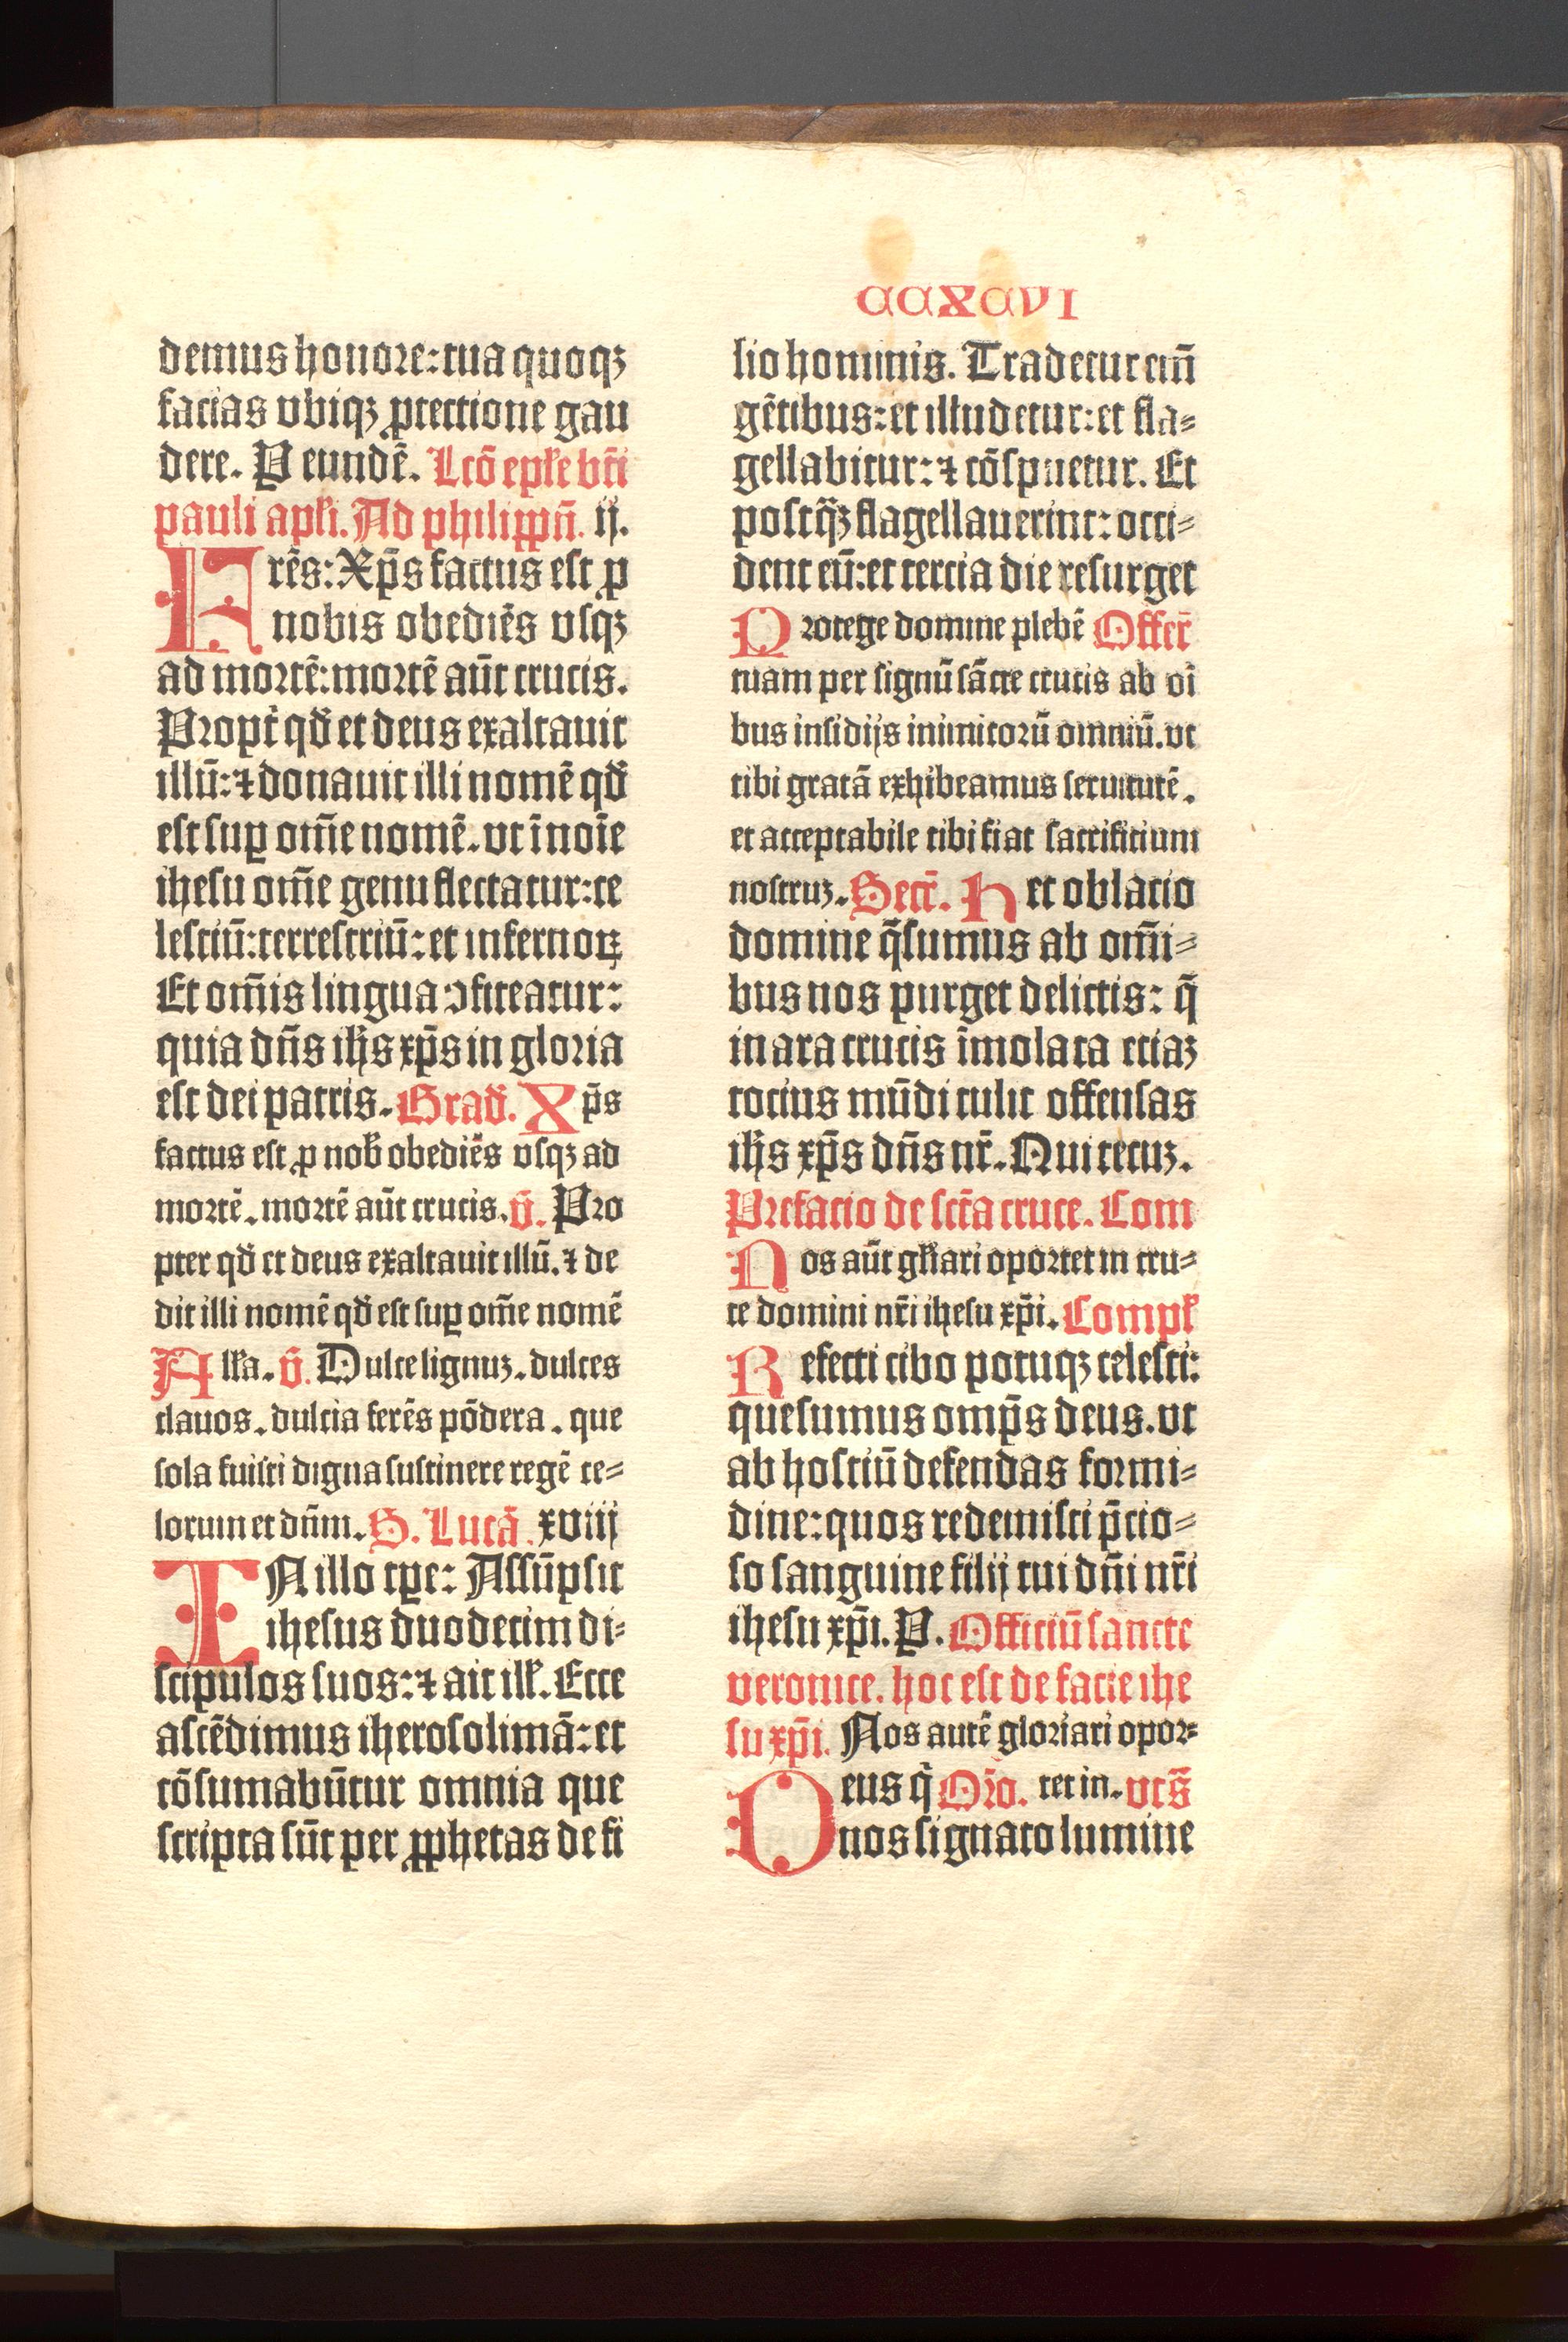 CCXCVI
demus honore: tua quoqꝫ
facias vbiqꝫ ꝓtectione gau
dere. P eundē. Lcō epl̄e bt̄i
pauli apl̄i. Ad philippn̄. ij.
FRēs: Xp̄s factus est ꝓ
nobis obediēs vsqꝫ
ad mortē: mortē aūt crucis.
Propt̄ qd̄ et deus exaltauit
illū: ⁊ donauit illi nomē qd̄
est suꝑ om̄e nomē. vt ī noīe
ihesu om̄e genu flectatur: ce
lestiū: terrestriū: et infernoꝝ
Et om̄is lingua ꝯfiteatur:
quia dn̄s ih̄s xp̄s in gloria
est dei patris. Grad̄. Xp̄s
factus est ꝓ nob̄ obediēs vsqꝫ ad
mortē. mortē aūt crucis. v̄. Pro
pter qd̄ et deus exaltauit illū. ⁊ de
dit illi nomē qd̄ est suꝑ om̄e nomē
All̄a. v̄. Dulce lignuꝫ. dulces
clauos. dulcia ferēs pōdera. que
sola fuisti digna sustinere regē ce⸗
lorum et dn̄m. S. Lucā. xviij
IN illo tꝑe: Assūpsit
ihesus duodecim di⸗
scipulos suos: ⁊ ait ill̄. Ecce
ascēdimus iherosolimā: et
cōsumabūtur omnia que
scripta sūt per ꝓphetas de fi
lio hominis. Tradetur em̄
gētibus: et illudetur: et fla⸗
gellabitur: ⁊ cōspuetur. Et
postq̄ꝫ flagellauerint: occi⸗
dent eū: et tercia die resurget
Protege domine plebē Offer̄
tuam per signū sācte crucis ab oī
bus insidijs inimicorū omniū. vt
tibi gratā exhibeamus seruitutē.
et acceptabile tibi fiat sacrificium
nostruꝫ. Secr̄. Hec oblatio
domine q̄sumus ab om̄i⸗
bus nos purget delictis: q̄
in ara crucis īmolata etiaꝫ
tocius mūdi tulit offensas
ih̄s xp̄s dn̄s nr̄. Qui tecuꝫ.
Prefacio de sct̄a cruce. Com
Nos aūt gl̄iari oportet in cru⸗
ce domini nr̄i ihesu xp̄i. Compl̄
Refecti cibo potuqꝫ celesti:
quesumus omp̄s deus. vt
ab hostiū defendas formi⸗
dine: quos redemisti p̄cio⸗
so sanguine filij tui dn̄i nr̄i
ihesu xp̄i. P. Officiū sancte
veronice. hoc est de facie ihe
su xp̄i. Nos autē gloriari opor⸗
Deus q̄ Or̄o. tet in. vts̄
nos signato lumine